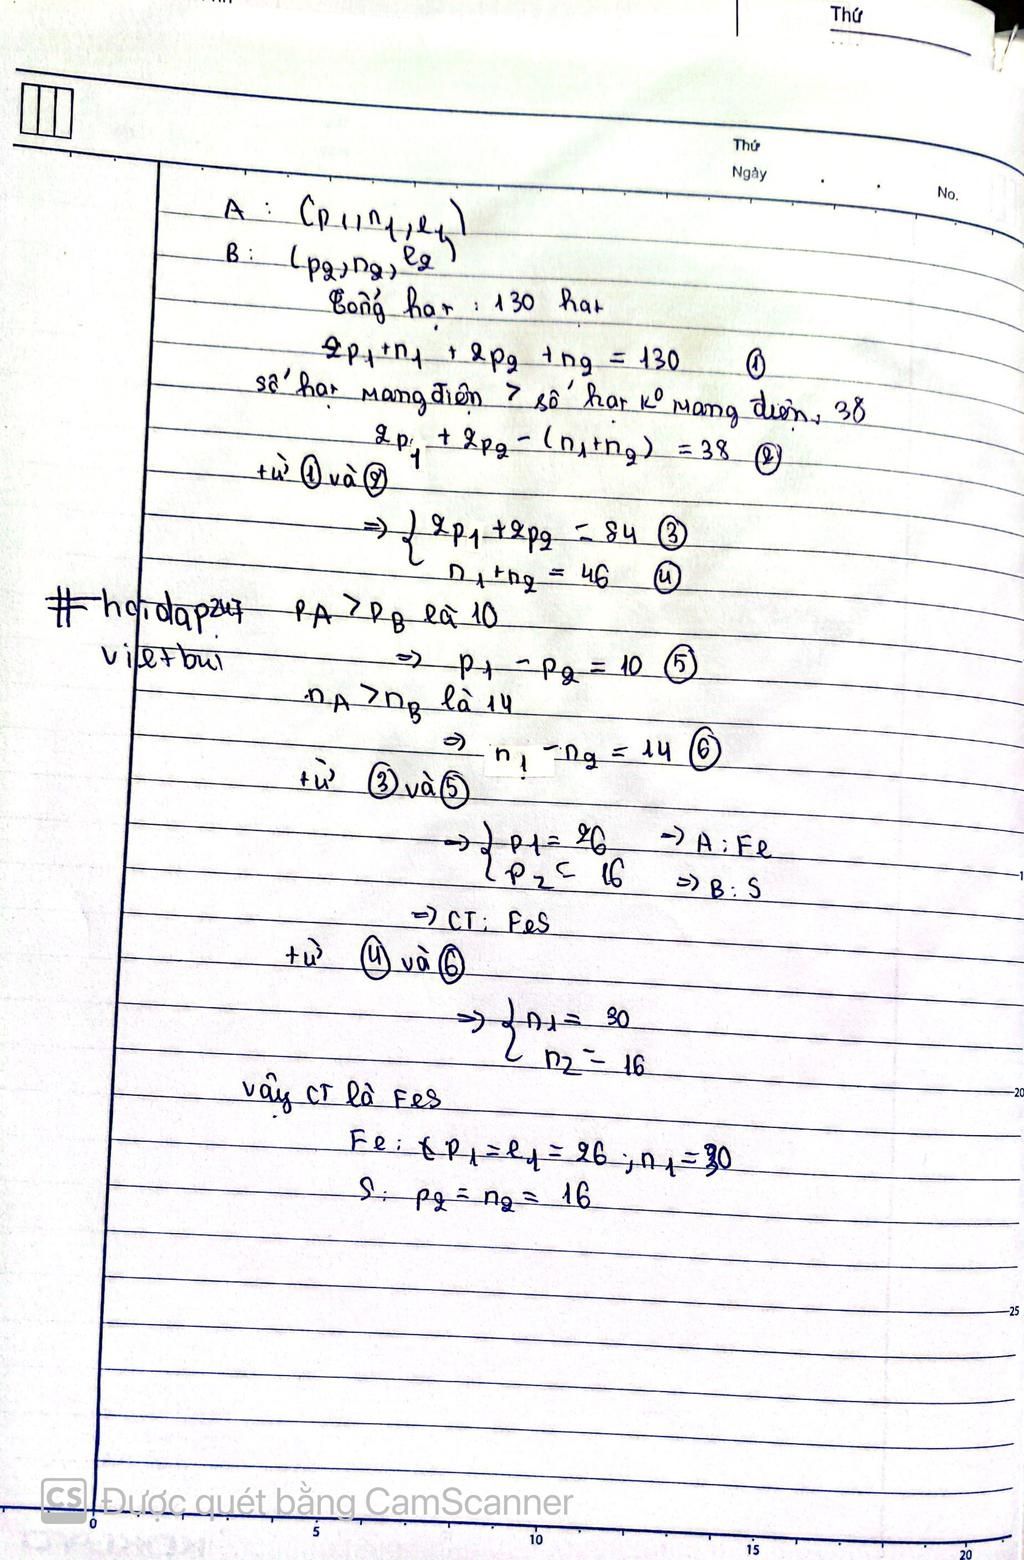 Thứ
Thứ
Ngày
No.
A : (p1,n1,e1)
B : (p2,n2,e2)
Tổng hạt : 130 hạt
2p1+n1 + 2p2 + n2 = 130 ①
số hạt mang điện > số hạt K⁰ mang điện, 38
2p1 + 2p2 - (n1+n2) = 38 ②
từ ① và ②
=> { 2p1 + 2p2 = 84 ③
n1+n2 = 46 ④
#hoidap247 PA > PB là 10
vietbui => p1 - p2 = 10 ⑤
nA > nB là 14
=> n1 - n2 = 14 ⑥
từ ③ và ⑤
=> { p1 = 26 => A : Fe
p2 = 16 => B : S
=> CT : FeS
từ ④ và ⑥
=> { n1 = 30
n2 = 16
vậy CT là FeS
Fe : p1 = e1 = 26 ; n1 = 30
S : p2 = n2 = 16
CS Được quét bằng CamScanner
0 5 10 15 20
1
20
25